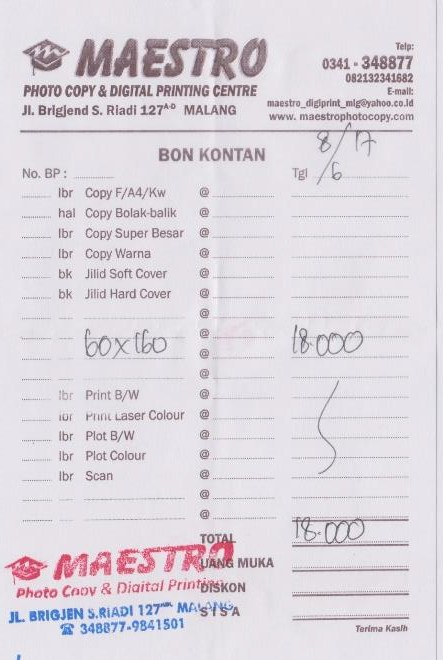 MAESTRO
PHOTO COPY & DIGITAL PRINTING CENTRE
Jl. Brigjend S. Riadi 127A-D MALANG
Telp:
0341 - 348877
082132341682
E-mail:
maestro_digiprint_mlg@yahoo.co.id
www. maestrophotocopy.com
BON KONTAN
No. BP :
Tgl 8/6 17
lbr Copy F/A4/Kw @
hal Copy Bolak-balik @
lbr Copy Super Besar @
lbr Copy Warna @
bk Jilid Soft Cover @
bk Jilid Hard Cover @
@
60x160 @ 18.000
@
lbr Print B/W @
lbr Print Laser Colour @
lbr Plot B/W @
lbr Plot Colour @
lbr Scan @
@
@
TOTAL 18.000
UANG MUKA
DISKON
SISA
Terima Kasih
MAESTRO
Photo Copy & Digital Printing
JL. BRIGJEN S.RIADI 127 MALANG
☎ 348877-9841501